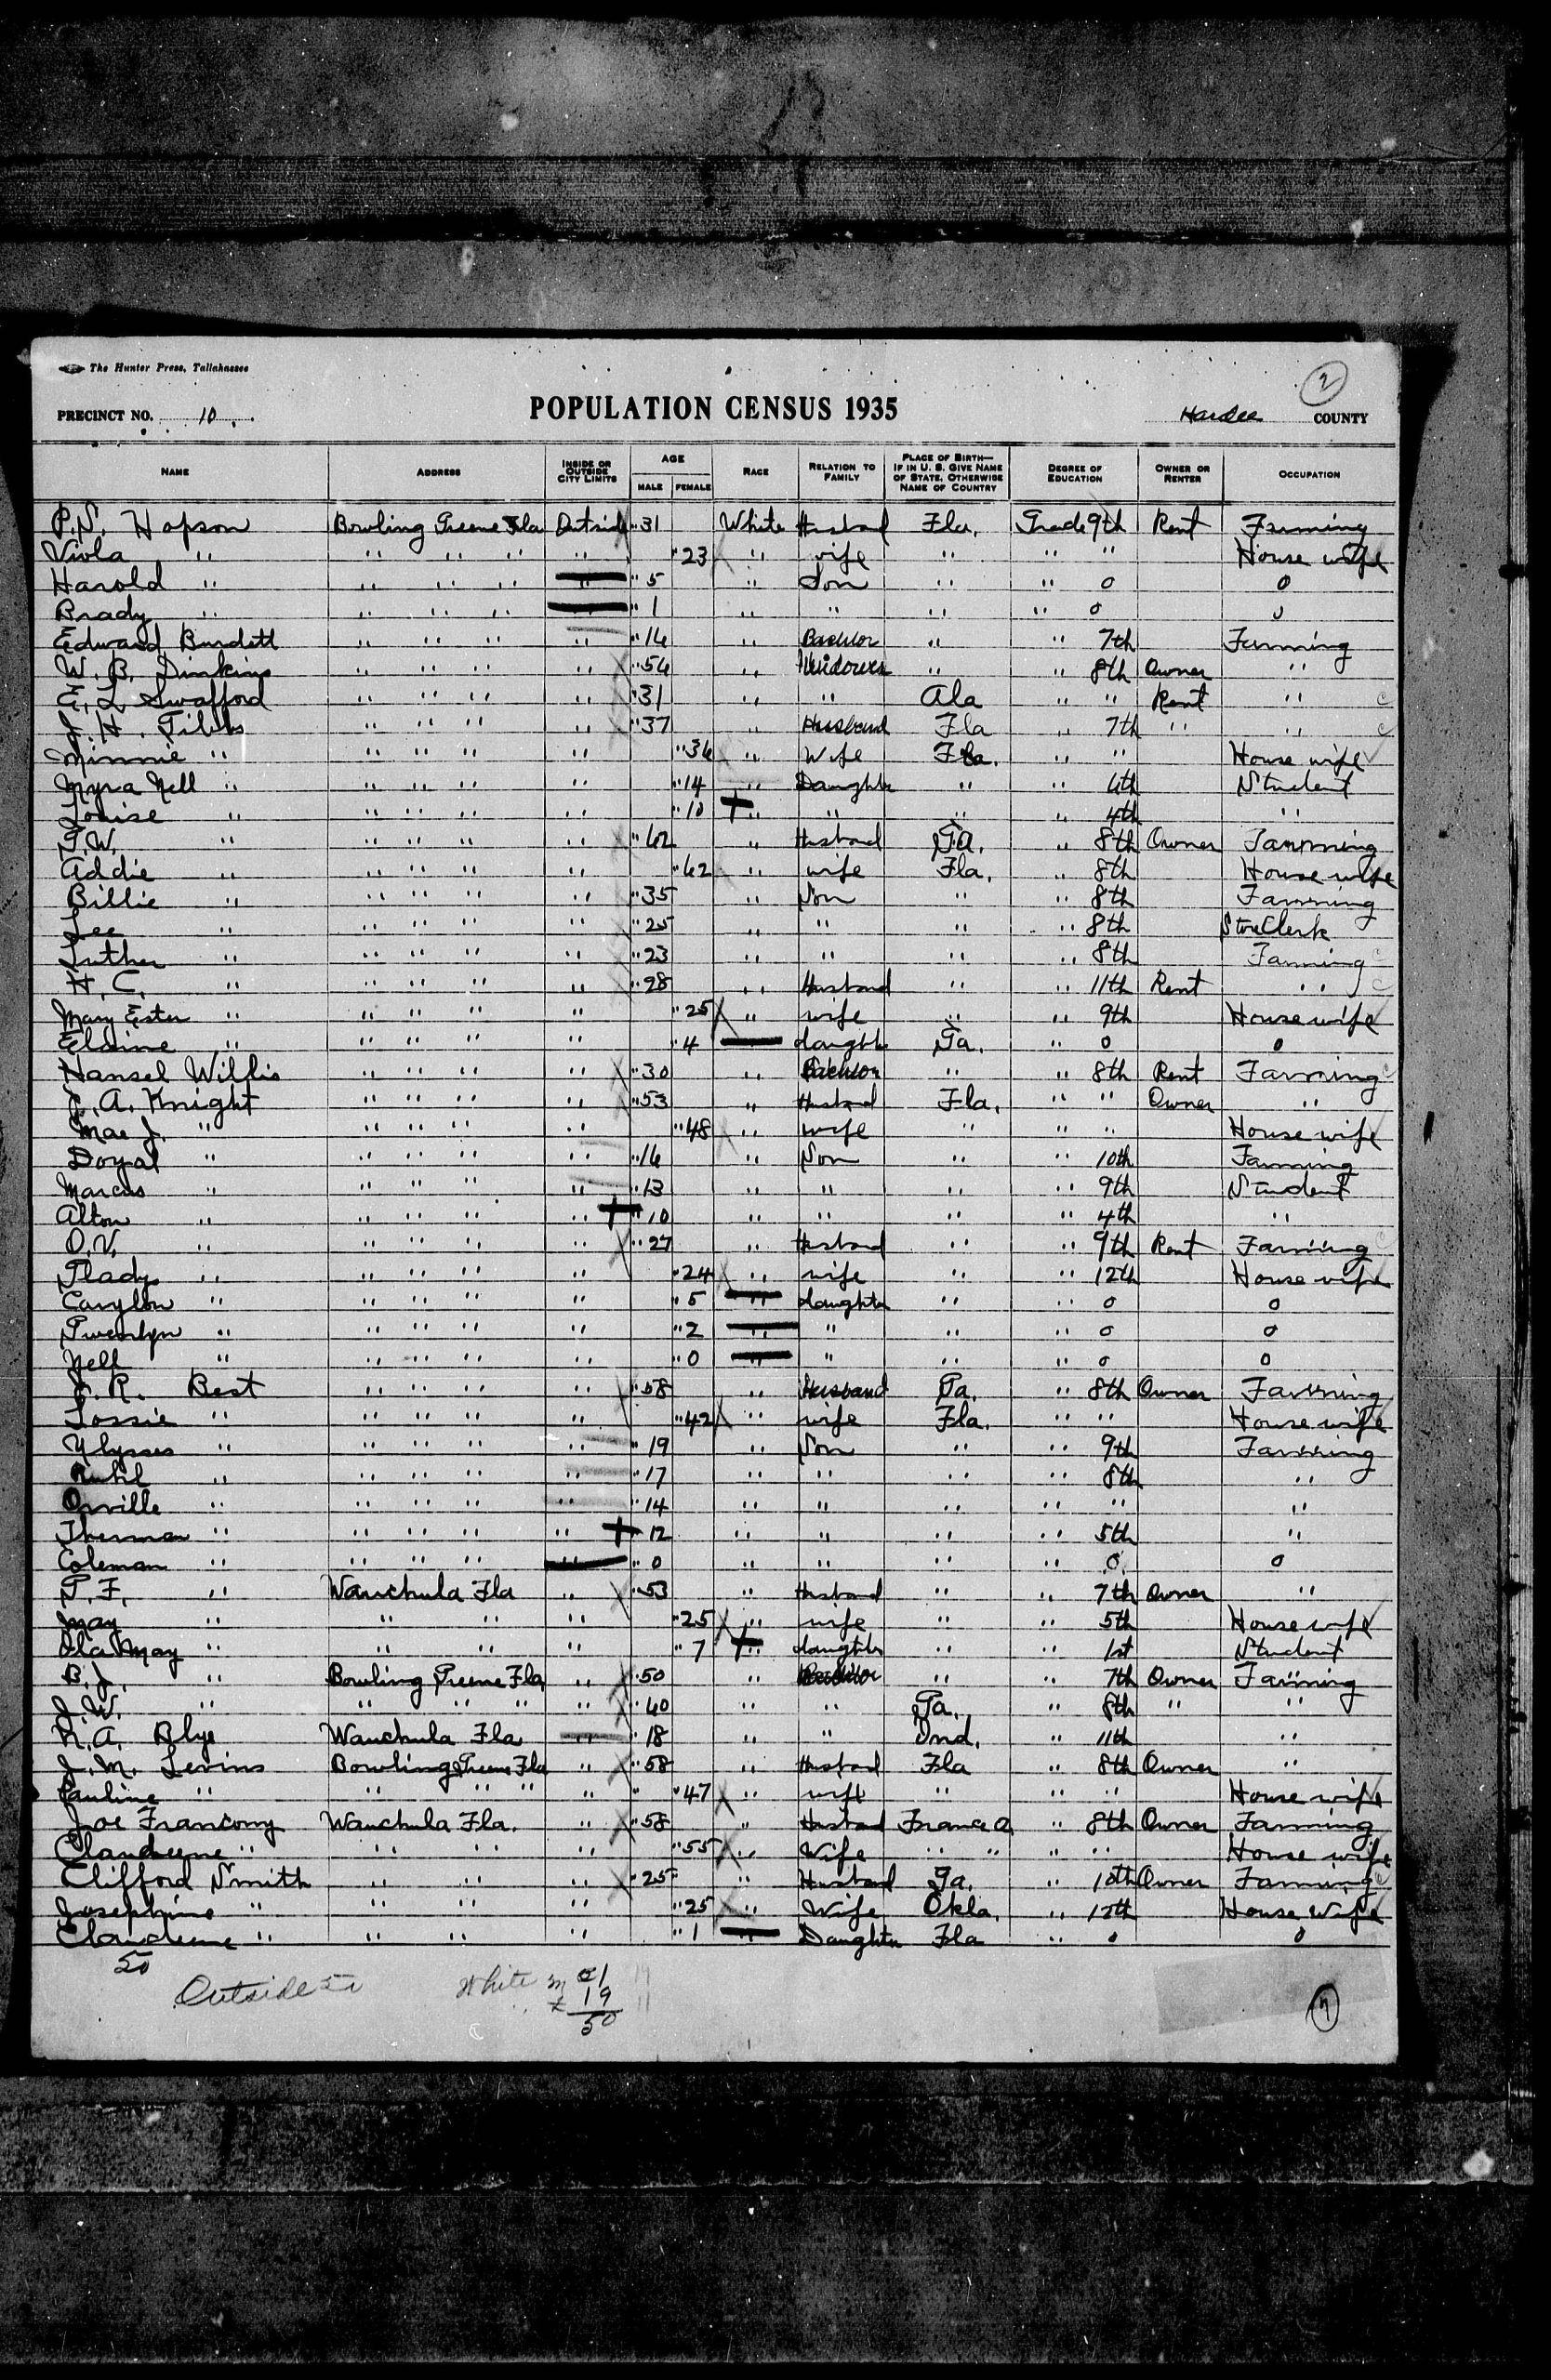 The Hunter Press, Tallahassee
2
PRECINCT NO. 10 POPULATION CENSUS 1935 Hardee COUNTY
NAME ADDRESS INSIDE OR OUTSIDE CITY LIMITS AGE MALE FEMALE RACE RELATION TO FAMILY PLACE OF BIRTH—IF IN U. S. GIVE NAME OF STATE, OTHERWISE NAME OF COUNTRY DEGREE OF EDUCATION OWNER OR RENTER OCCUPATION
P.N. Hopson Bowling Greene Fla Outside " 31 White Husband Fla. Grade 9th Rent Farming
Viola " " " " " " 23 " wife " " " House wife
Harold " " " " " " 5 " Son " " 0 0
Brady " " " " " " 1 " " " " 0 0
Edward Burdett " " " " " 16 " Bachlor " " 7th Farming
W. B. Dinkins " " " " " 54 " Widower " " 8th Owner "
E. L. Swafford " " " " " 31 " " Ala " " Rent "
J. H. Tibbs " " " " " 37 " Husband Fla " 7th " "
Minnie " " " " " " 36 " Wife Fla. " " House wife
Myra Nell " " " " " " 14 " Daughter " " 6th Student
Louise " " " " " " 10 " " " " 4th "
T.W. " " " " " " 62 " Husband Ga. " 8th Owner Farming
Addie " " " " " " 62 " wife Fla. " 8th House wife
Billie " " " " " " 35 " Son " " 8th Farming
Lee " " " " " " 25 " " " " 8th Store Clerk
Luther " " " " " " 23 " " " " 8th Farming
H. C. " " " " " " 28 " Husband " " 11th Rent "
Mary Ester " " " " " " 25 " wife " " 9th House wife
Elaine " " " " " " 4 " daughter Ga. " 0 0
Hansel Willis " " " " " 30 " Bachlor " " 8th Rent Farming
J. A. Knight " " " " " 53 " Husband Fla. " " Owner "
Mae J. " " " " " " 48 " wife " " " House wife
Doyal " " " " " " 16 " Son " " 10th Farming
Marcus " " " " " " 13 " " " " 9th Student
Alton " " " " " " 10 " " " " 4th "
O.V. " " " " " " 27 " Husband " " 9th Rent Farming
Gladys " " " " " " 24 " wife " " 12th House wife
Carylon " " " " " " 5 " daughter " " 0 0
Gwenlyn " " " " " " 2 " " " " 0 0
Nell " " " " " " 0 " " " " 0 0
J. R. Best " " " " " 58 " Husband Ga. " 8th Owner Farming
Lossie " " " " " " 42 " wife Fla. " " House wife
Ulysses " " " " " " 19 " Son " " 9th Farming
Ruhl " " " " " " 17 " " " " 8th "
Orville " " " " " " 14 " " " " " "
Therman " " " " " " 12 " " " " 5th "
Coleman " " " " " " 0 " " " " 0 0
P. F. " Wauchula Fla " " 53 " Husband " " 7th Owner "
May " " " " " 25 " wife " " 5th House wife
Ola May " " " " " 7 " daughter " " 1st Student
B. J. " Bowling Greene Fla " " 50 " Bachlor " " 7th Owner Farming
J. W. " " " " " " 60 " " Ga. " 8th " "
R. A. Blye Wauchula Fla " " 18 " " Ind. " 11th "
J. M. Levins Bowling Greene Fla " " 58 " Husband Fla " 8th Owner "
Pauline " " " " " " 47 " wife " " " House wife
Joe Francony Wauchula Fla. " " 58 " Husband France " 8th Owner Farming
Claudeene " " " " " 55 " Wife " " " " House wife
Clifford Smith " " " " 25 " Husband Ga. " 10th Owner Farming
Josephine " " " " " 25 " Wife Okla. " 12th House Wife
Claudeene " " " " " 1 " Daughter Fla " 0 0
50
Outside 50 White m 31
" f 19
50